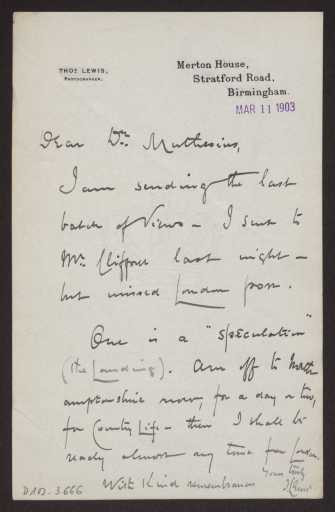 THOS. LEWIS,
PHOTOGRAPHER.
Merton House,
Stratford Road,
Birmingham.
MAR 11 1903
Dear Dr. Muthesius,
I am sending the last
batch of Views - I sent to
Mr. Clifford last night -
but missed London post.
One is a "speculation"
(the Landing). Am off to North-
amptonshire now, for a day or two,
for Country Life - then I shall be
ready almost any time for London.
With Kind remembrances
Yours truly
DAD-3666